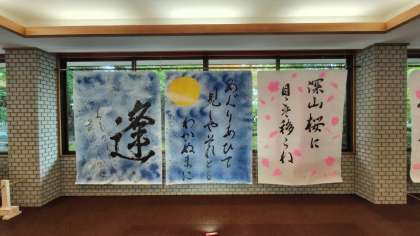 深山桜に
目も移らね
めぐりあひて
見しやそれとも
わかぬまに
逢